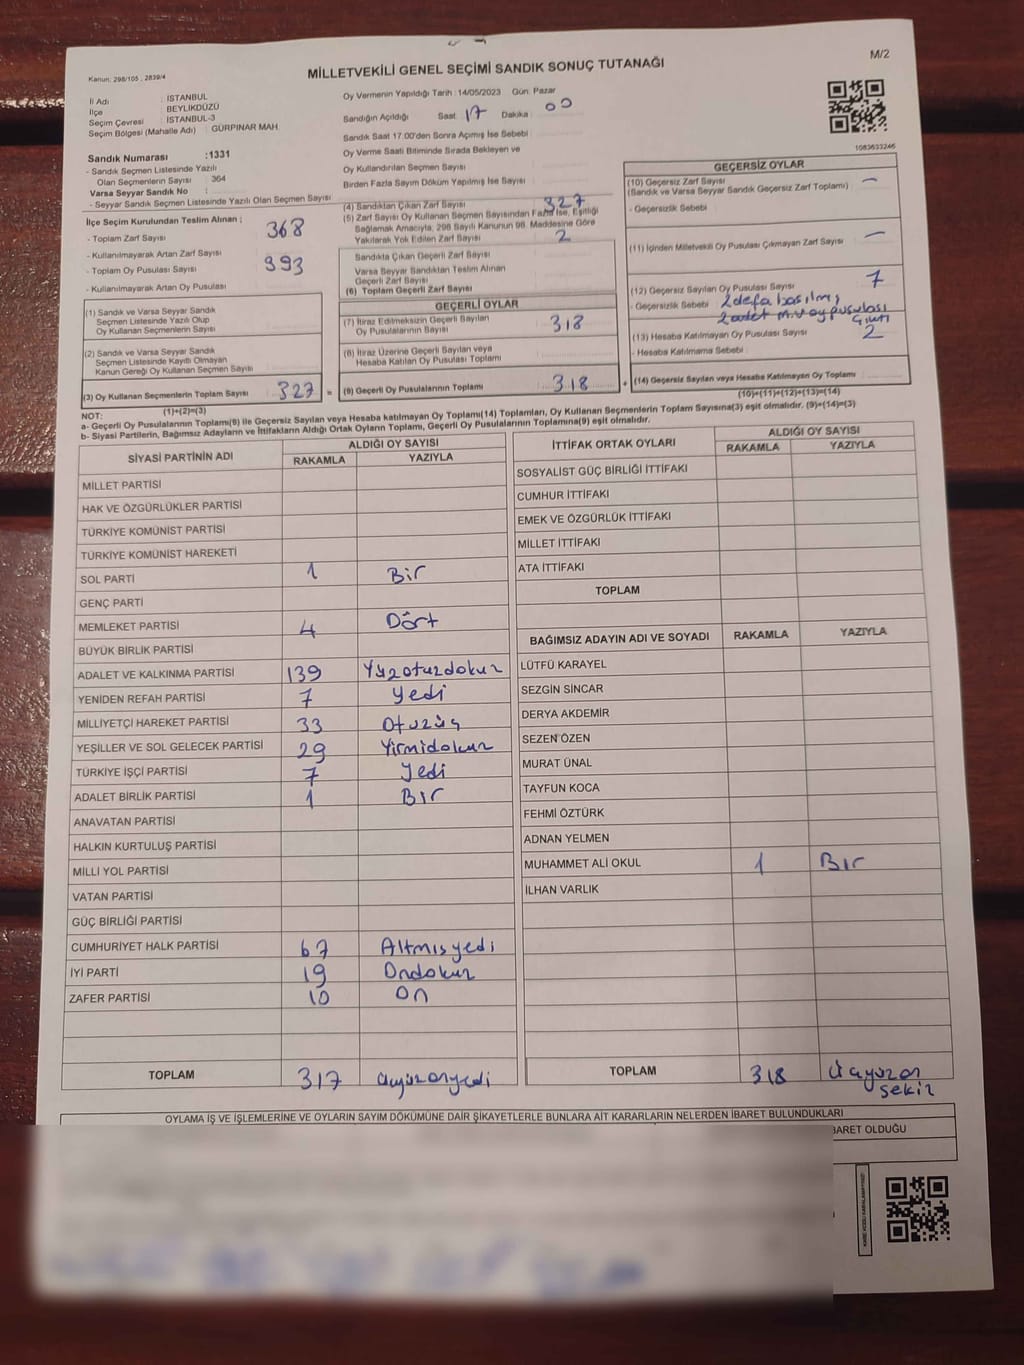 M/2
Kanun: 298/105 , 2839/4
MİLLETVEKİLİ GENEL SEÇİMİ SANDIK SONUÇ TUTANAĞI
İl Adı : İSTANBUL
İlçe : BEYLİKDÜZÜ
Seçim Çevresi : İSTANBUL-3
Seçim Bölgesi (Mahalle Adı) : GÜRPINAR MAH.
Sandık Numarası :1331
- Sandık Seçmen Listesinde Yazılı
Olan Seçmenlerin Sayısı : 364
Varsa Seyyar Sandık No :
- Seyyar Sandık Seçmen Listesinde Yazılı Olan Seçmen Sayısı
Oy Vermenin Yapıldığı Tarih :14/05/2023 Gün: Pazar
Sandığın Açıldığı Saat: 17 Dakika : 00
Sandık Saat 17.00'den Sonra Açımış İse Sebebi :
Oy Verme Saati Bitiminde Sırada Bekleyen ve
Oy Kullandırılan Seçmen Sayısı
Birden Fazla Sayım Döküm Yapılmış İse Sayısı
1083633246
İlçe Seçim Kurulundan Teslim Alınan ;
- Toplam Zarf Sayısı 368
- Kullanılmayarak Artan Zarf Sayısı
- Toplam Oy Pusulası Sayısı 393
- Kullanılmayarak Artan Oy Pusulası
(1) Sandık ve Varsa Seyyar Sandık
Seçmen Listesinde Yazılı Olup
Oy Kullanan Seçmenlerin Sayısı
(2) Sandık ve Varsa Seyyar Sandık
Seçmen Listesinde Kayıtlı Olmayan
Kanun Gereği Oy Kullanan Seçmen Sayısı
(3) Oy Kullanan Seçmenlerin Toplam Sayısı 327 =
(1)+(2)=(3)
(4) Sandıktan Çıkan Zarf Sayısı 327
(5) Zarf Sayısı Oy Kullanan Seçmen Sayısından Fazla İse, Eşitliği
Sağlamak Amacıyla, 298 Sayılı Kanunun 98. Maddesine Göre
Yakılarak Yok Edilen Zarf Sayısı 2
Sandıkta Çıkan Geçerli Zarf Sayısı
Varsa Seyyar Sandıktan Teslim Alınan
Geçerli Zarf Sayısı
(6) Toplam Geçerli Zarf Sayısı
GEÇERLİ OYLAR
(7) İtiraz Edilmeksizin Geçerli Sayılan
Oy Pusulalarının Sayısı 318
(8) İtiraz Üzerine Geçerli Sayılan veya
Hesaba Katılan Oy Pusulası Toplamı
(9) Geçerli Oy Pusulalarının Toplamı 318 +
GEÇERSİZ OYLAR
(10) Geçersiz Zarf Sayısı
(Sandık ve Varsa Seyyar Sandık Geçersiz Zarf Toplamı) —
- Geçersizlik Sebebi :
(11) İçinden Milletvekili Oy Pusulası Çıkmayan Zarf Sayısı —
(12) Geçersiz Sayılan Oy Pusulası Sayısı 7
- Geçersizlik Sebebi : 2 defa basılmış
2 adet m.v oy pusulası
çıktı
(13) Hesaba Katılmayan Oy Pusulası Sayısı 2
- Hesaba Katılmama Sebebi :
(14) Geçersiz Sayılan veya Hesaba Katılmayan Oy Toplamı
(10)+(11)+(12)+(13)=(14)
NOT:
a- Geçerli Oy Pusulalarının Toplamı(9) ile Geçersiz Sayılan veya Hesaba katılmayan Oy Toplamı(14) Toplamları, Oy Kullanan Seçmenlerin Toplam Sayısına(3) eşit olmalıdır. (9)+(14)=(3)
b- Siyasi Partilerin, Bağımsız Adayların ve İttifakların Aldığı Ortak Oyların Toplamı, Geçerli Oy Pusulalarının Toplamına(9) eşit olmalıdır.
SİYASİ PARTİNİN ADI ALDIĞI OY SAYISI
RAKAMLA YAZIYLA
MİLLET PARTİSİ
HAK VE ÖZGÜRLÜKLER PARTİSİ
TÜRKİYE KOMÜNİST PARTİSİ
TÜRKİYE KOMÜNİST HAREKETİ
SOL PARTİ 1 Bir
GENÇ PARTİ
MEMLEKET PARTİSİ 4 Dört
BÜYÜK BİRLİK PARTİSİ
ADALET VE KALKINMA PARTİSİ 139 Yüzotuzdokuz
YENİDEN REFAH PARTİSİ 7 Yedi
MİLLİYETÇİ HAREKET PARTİSİ 33 Otuzüç
YEŞİLLER VE SOL GELECEK PARTİSİ 29 Yirmidokuz
TÜRKİYE İŞÇİ PARTİSİ 7 Yedi
ADALET BİRLİK PARTİSİ 1 Bır
ANAVATAN PARTİSİ
HALKIN KURTULUŞ PARTİSİ
MİLLİ YOL PARTİSİ
VATAN PARTİSİ
GÜÇ BİRLİĞİ PARTİSİ
CUMHURİYET HALK PARTİSİ 67 Altmışyedi
İYİ PARTİ 19 Ondokuz
ZAFER PARTİSİ 10 On
TOPLAM 317 üçyüzonyedi
İTTİFAK ORTAK OYLARI ALDIĞI OY SAYISI
RAKAMLA YAZIYLA
SOSYALİST GÜÇ BİRLİĞİ İTTİFAKI
CUMHUR İTTİFAKI
EMEK VE ÖZGÜRLÜK İTTİFAKI
MİLLET İTTİFAKI
ATA İTTİFAKI
TOPLAM
BAĞIMSIZ ADAYIN ADI VE SOYADI RAKAMLA YAZIYLA
LÜTFÜ KARAYEL
SEZGİN SİNCAR
DERYA AKDEMİR
SEZEN ÖZEN
MURAT ÜNAL
TAYFUN KOCA
FEHMİ ÖZTÜRK
ADNAN YELMEN
MUHAMMET ALİ OKUL 1 Bır
İLHAN VARLIK
TOPLAM 318 Üçyüzon
sekiz
OYLAMA İŞ VE İŞLEMLERİNE VE OYLARIN SAYIM DÖKÜMÜNE DAİR ŞİKAYETLERLE BUNLARA AİT KARARLARIN NELERDEN İBARET BULUNDUKLARI
BARET OLDUĞU